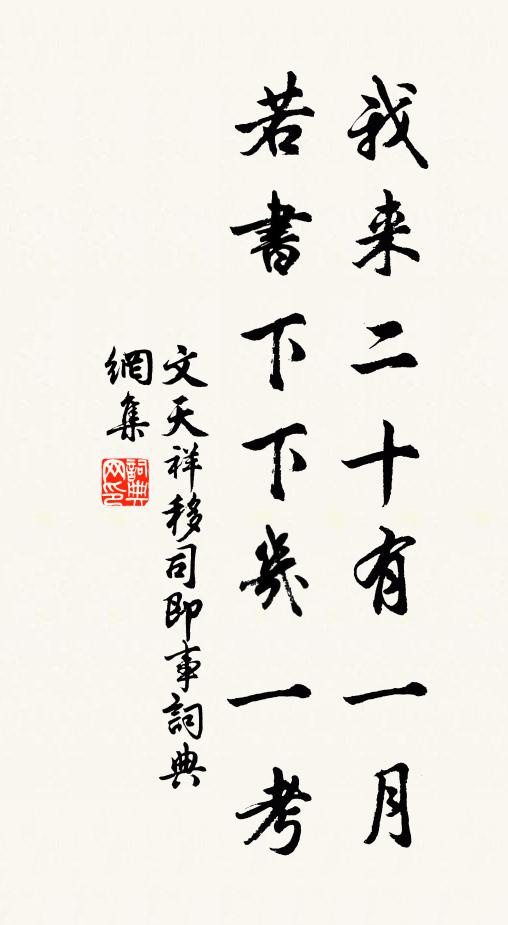 我来二十有一月
若書下下幾一考
文天祥移司即事詞典
網集
詞典网印